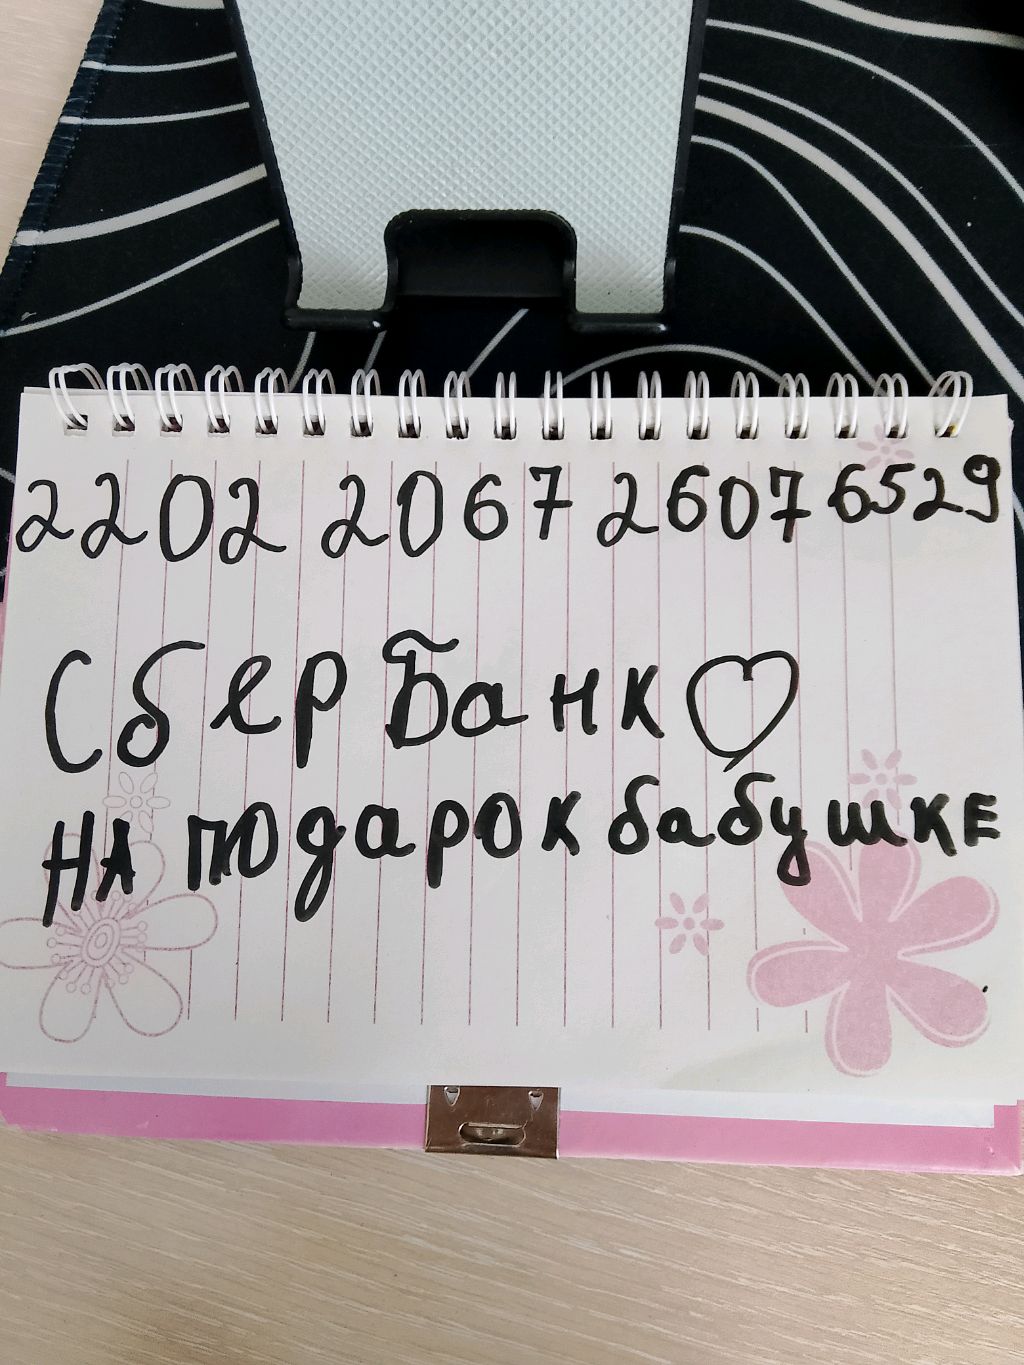 2202 2067 2607 6529
СберБанк♡
НА подарок бабушке